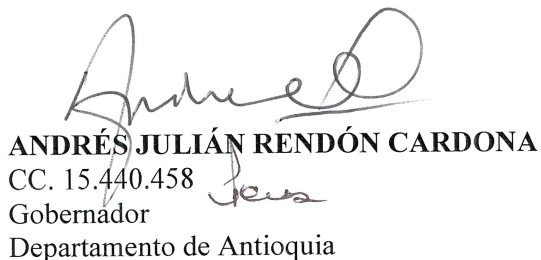 Andres
ANDRÉS JULIÁN RENDÓN CARDONA
CC. 15.440.458
Gobernador
Departamento de Antioquia